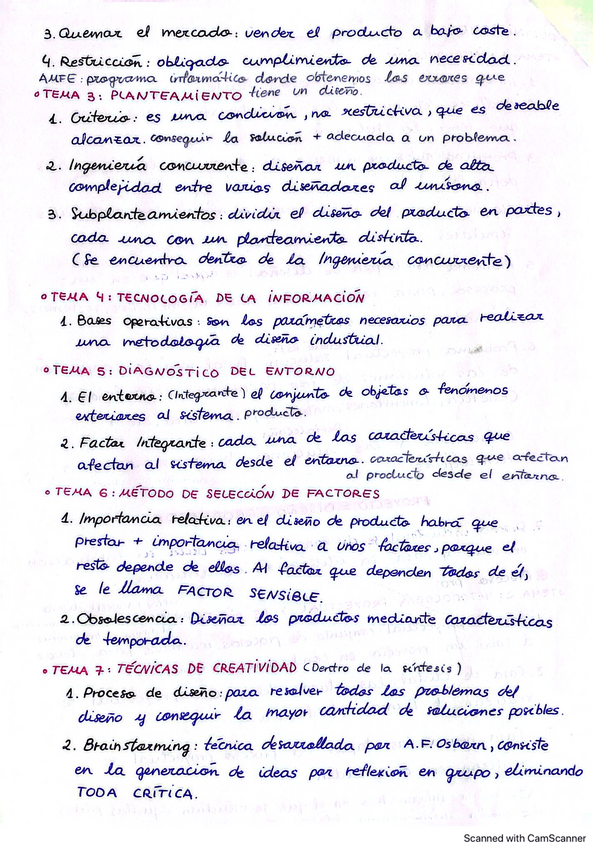 3. Quemar el mercado: vender el producto a bajo coste.
4. Restricción: obligado cumplimiento de una necesidad.
AMFE: programa informático donde obtenemos los errores que
tiene un diseño.
• TEMA 3: PLANTEAMIENTO
1. Criterio: es una condición, no restrictiva, que es deseable
alcanzar. conseguir la solución + adecuada a un problema.
2. Ingeniería concurrente: diseñar un producto de alta
complejidad entre varios diseñadores al unísono.
3. Subplanteamientos: dividir el diseño del producto en partes,
cada una con un planteamiento distinto.
(Se encuentra dentro de la Ingeniería concurrente)
• TEMA 4: TECNOLOGÍA DE LA INFORMACIÓN
1. Bases operativas: son los parámetros necesarios para realizar
una metodología de diseño industrial.
• TEMA 5: DIAGNÓSTICO DEL ENTORNO
1. El entorno: (Integrante) el conjunto de objetos o fenómenos
exteriores al sistema. producto.
2. Factor Integrante: cada una de las características que
afectan al sistema desde el entorno. características que afectan
al producto desde el entorno.
• TEMA 6: MÉTODO DE SELECCIÓN DE FACTORES
1. Importancia relativa: en el diseño de producto habrá que
prestar + importancia relativa a unos factores, porque el
resto depende de ellos. Al factor que dependen todos de él,
se le llama FACTOR SENSIBLE.
2. Obsolescencia: Diseñar los productos mediante características
de temporada.
• TEMA 7: TÉCNICAS DE CREATIVIDAD (Dentro de la síntesis)
1. Proceso de diseño: para resolver todos los problemas del
diseño y conseguir la mayor cantidad de soluciones posibles.
2. Brainstorming: técnica desarrollada por A.F. Osborn, consiste
en la generación de ideas por reflexión en grupo, eliminando
TODA CRÍTICA.
Scanned with CamScanner